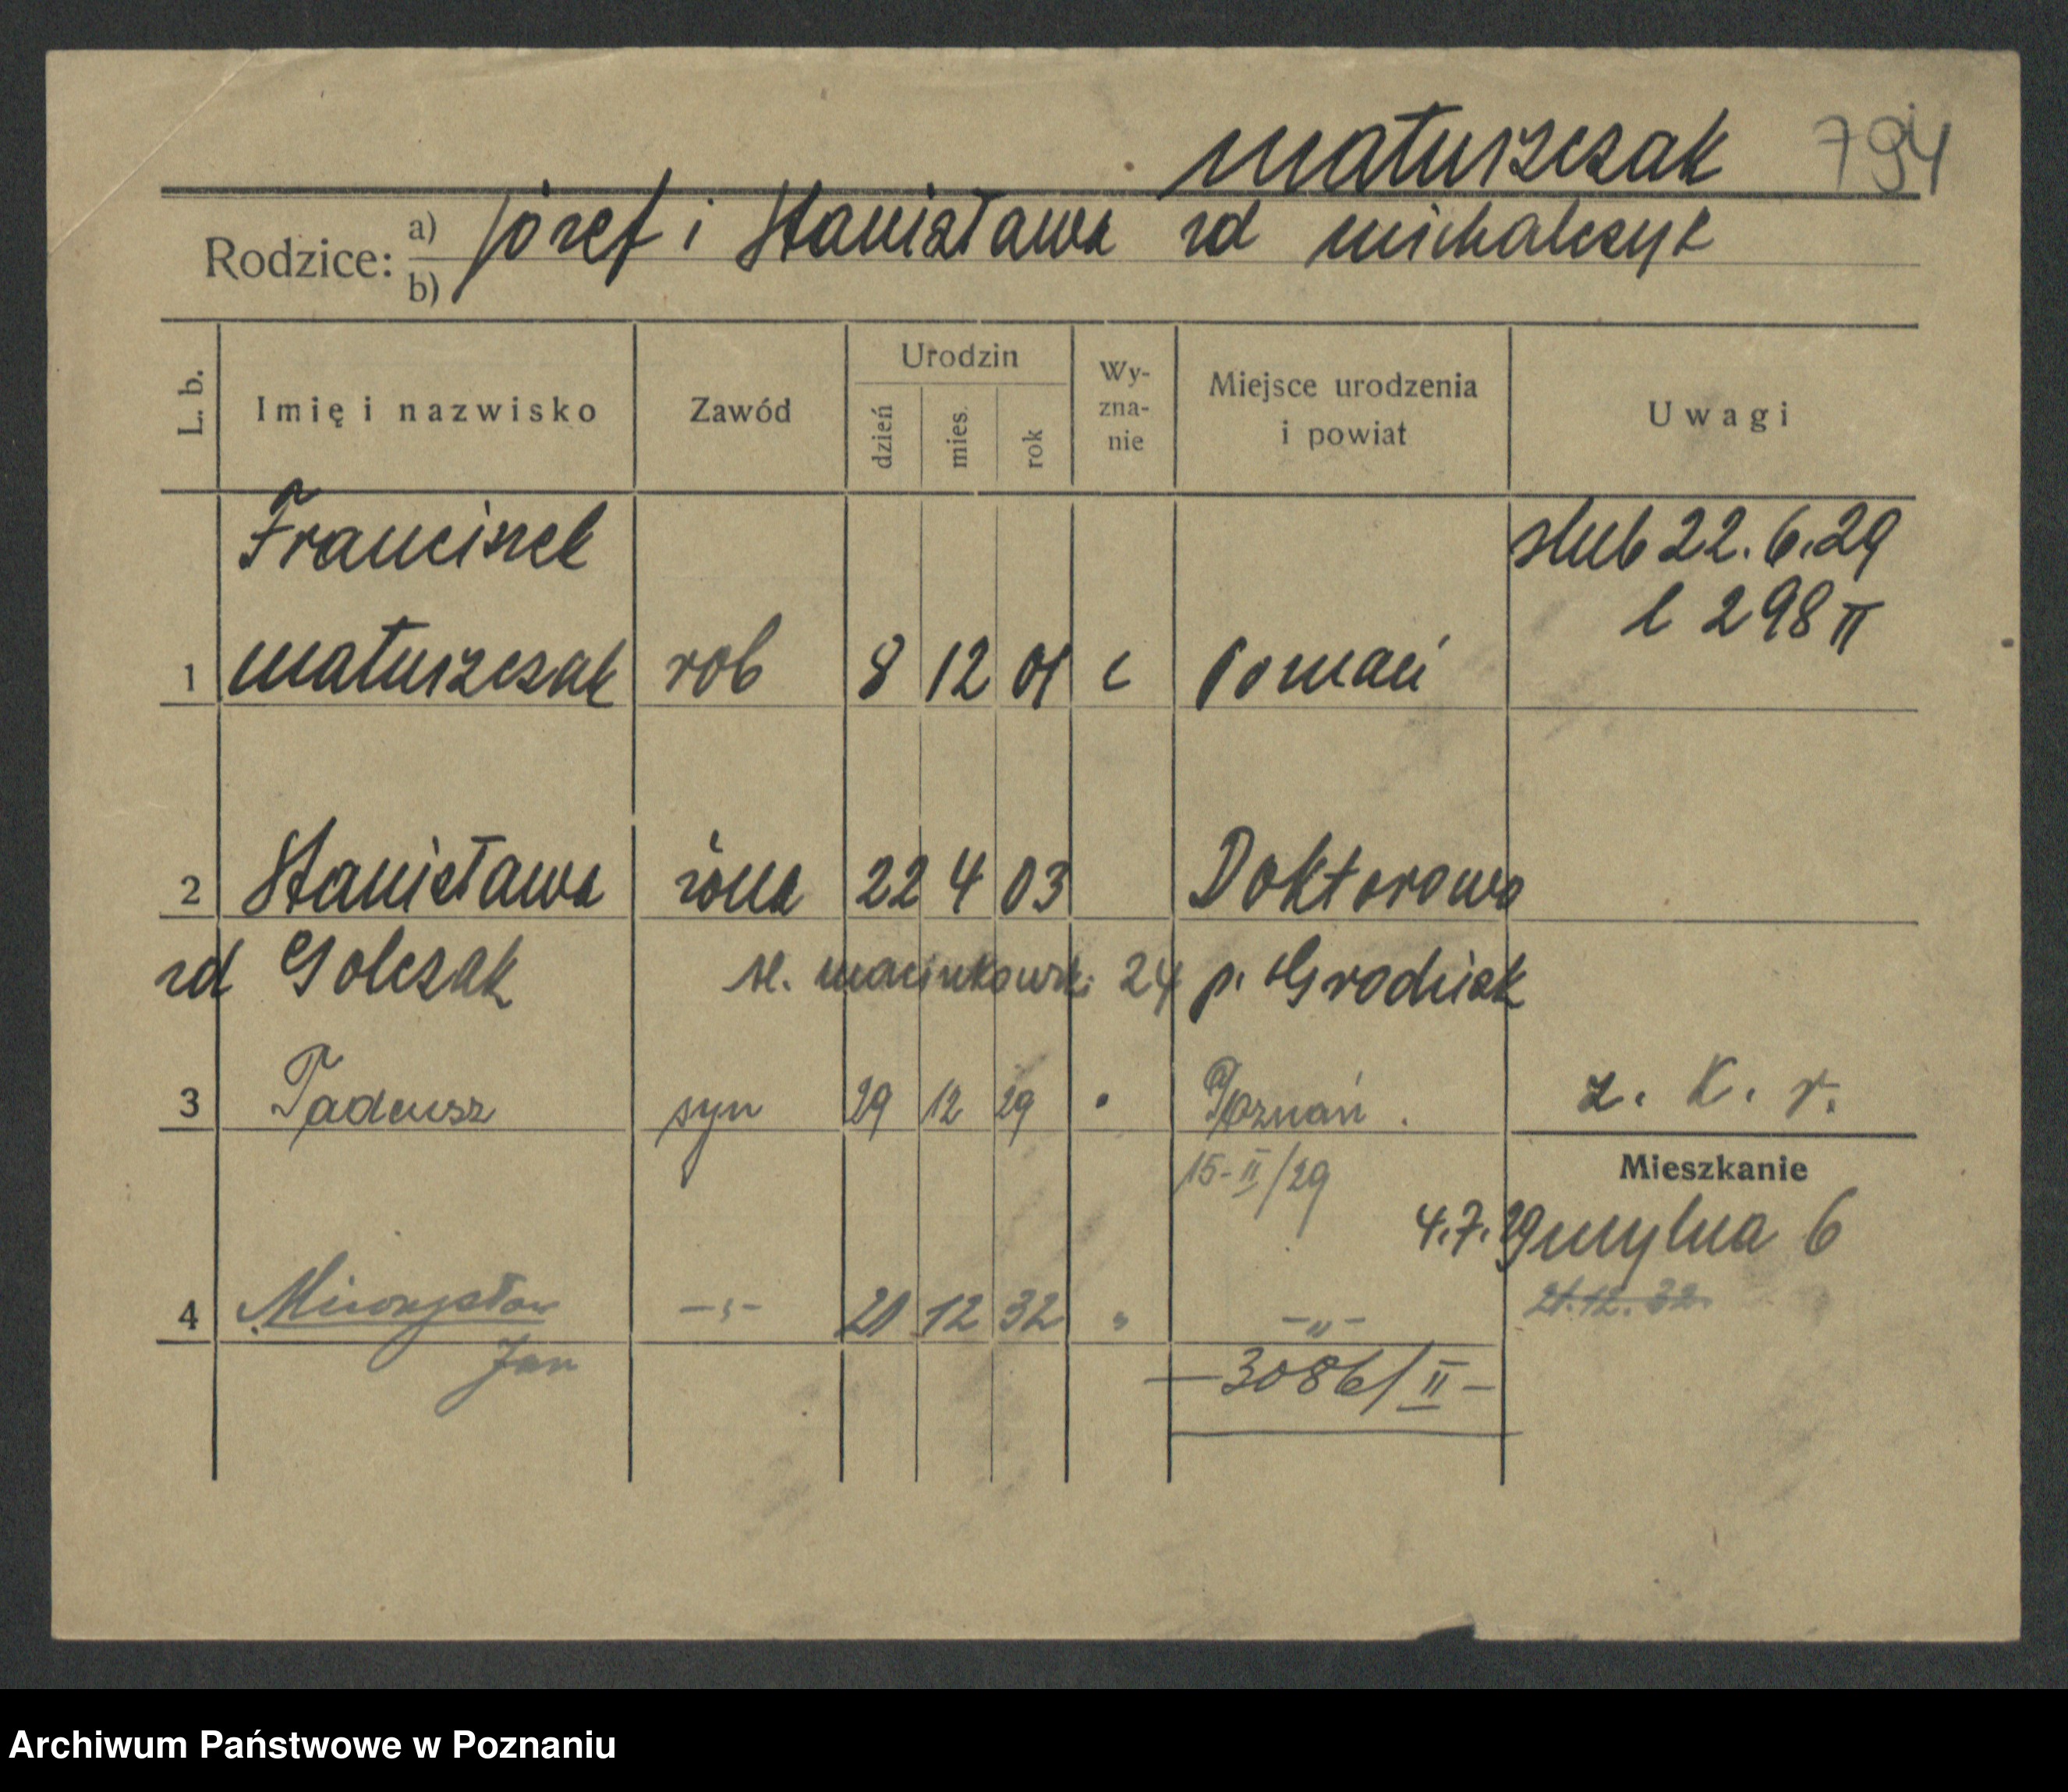 Matuszczak 794
Rodzice: a) Józef i Stanisława rd Michalczyk
b)
L. b. Imię i nazwisko Zawód Urodzin dzień mies. rok Wy-zna-nie Miejsce urodzenia i powiat Uwagi
Franciszek ślub 22.6.29
l 298 II
1 Matuszczak rob 8 12 01 c Poznań
2 Stanisława żona 22 4 03 Doktorowo
rd Golczak st. Marcinkowski 24 p. Grodzisk
3 Tadeusz syn 29 12 29 " Poznań. z. K. r.
15-II/29 Mieszkanie
4.7.29 Mylna 6
4 Mieczysław -"- 21 12 32 " -"- 21.12.32
Jan -3086/II-
Archiwum Państwowe w Poznaniu